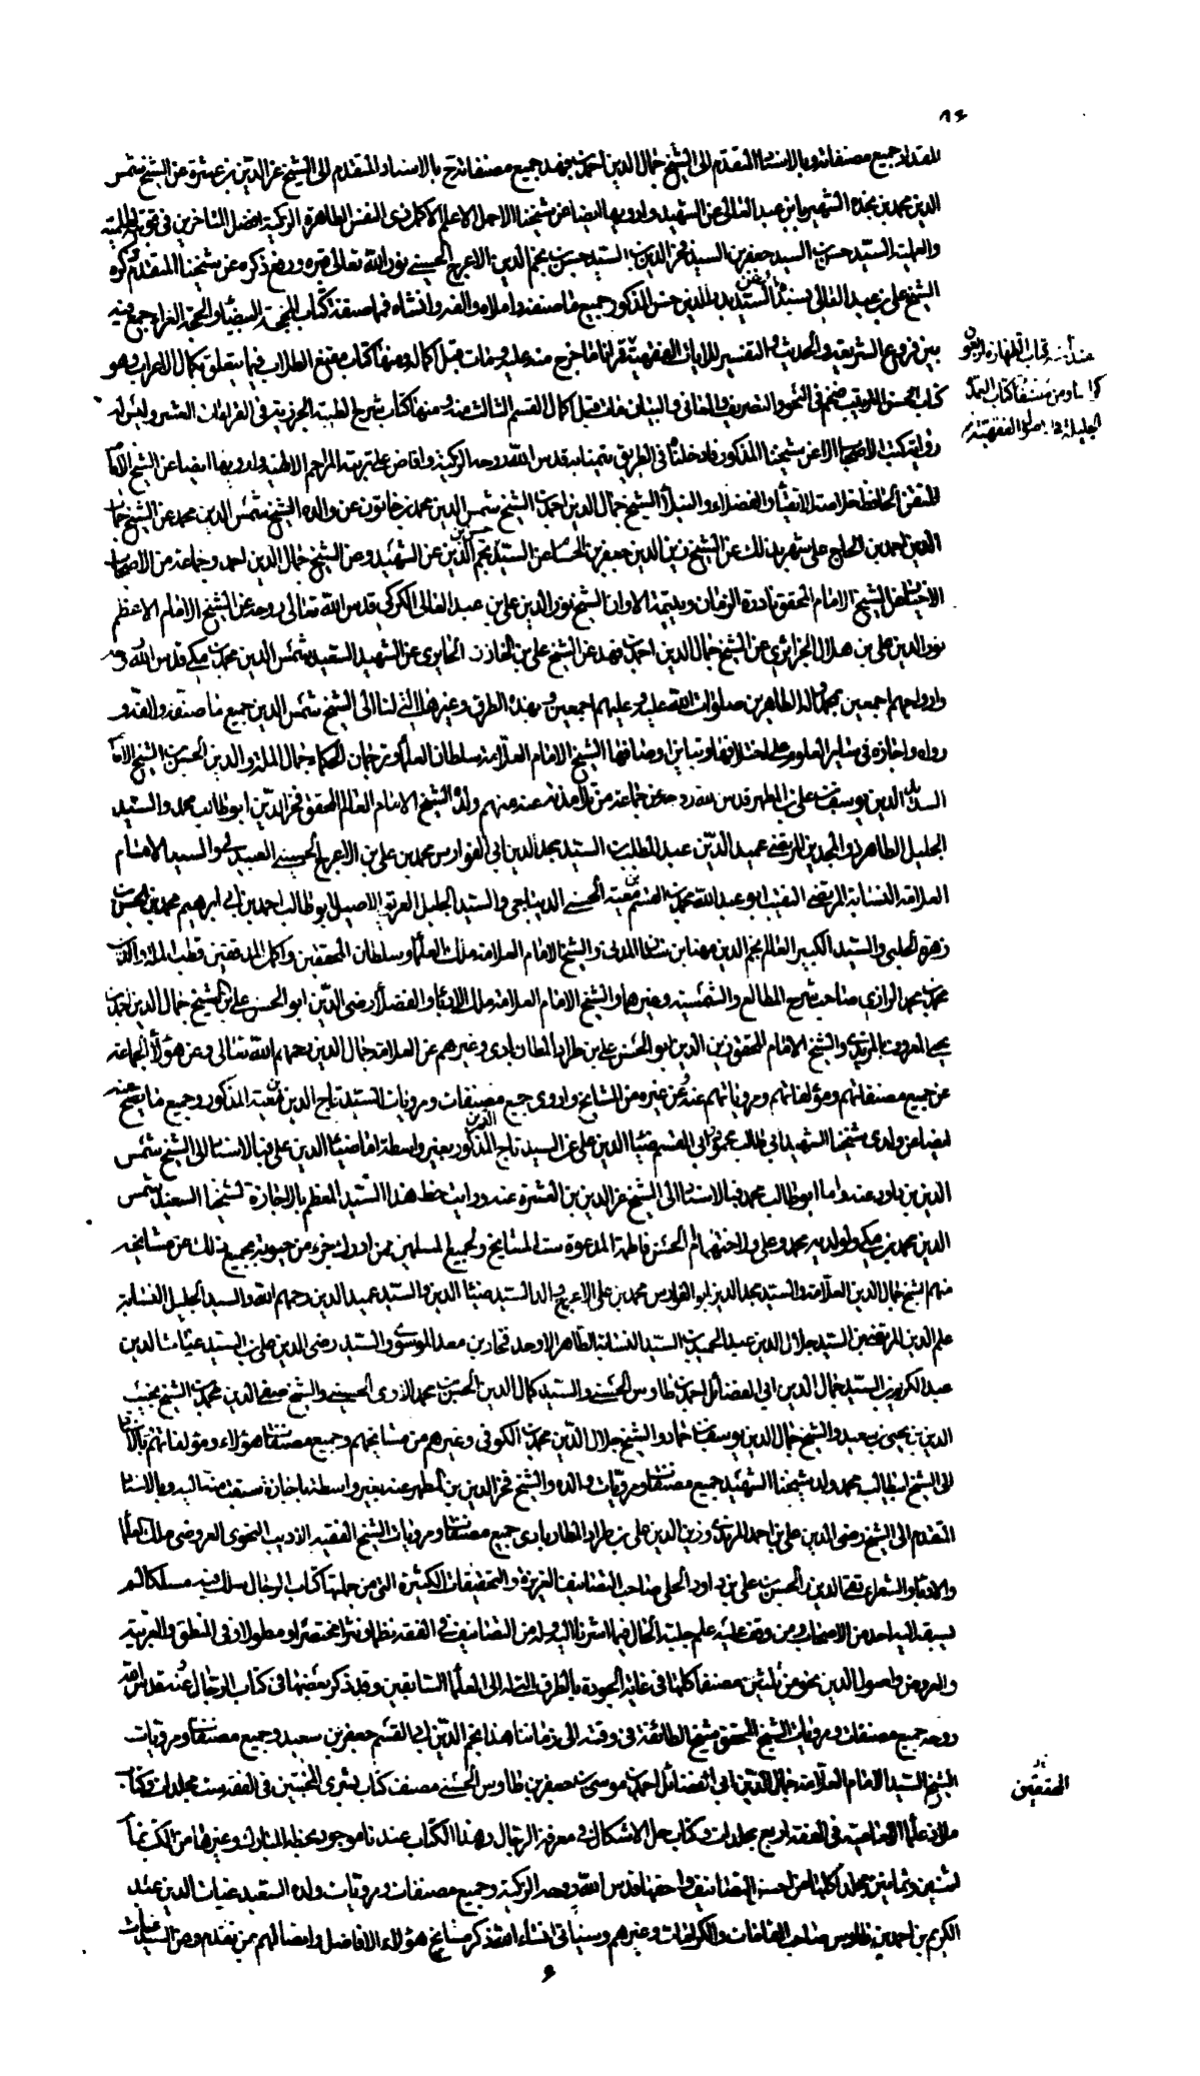 ٨٤
المقداد جميع مصنفاته وبالاسناد المتقدم الى الشيخ جمال الدين احمد بن فهد جميع مصنفاته ح بالاسناد المتقدم الى الشيخ عز الدين بن عشرة عن الشيخ شمس
الدين محمد بن نجدة الشهير بابن عبد العالى عن الشهيد وارويها ايضا عن شيخنا الاجل الاعلم الاكمل ذى النفس الطاهرة الزكية افضل المتاخرين فى قوتيه العلمية
والعملية السيد حسن بن السيد جعفر بن السيد فخر الدين بن السيد حسن بن نجم الدين الاعرج الحسينى نور الله تعالى قبره ورفع ذكره عن شيخنا المتقدم ذكره
الشيخ على بن عبد العالى بسنده السيد بدر الدين حسن المذكور جميع ما صنفه واملاه والفه وانشاه فما صنفه كتاب المحجة البيضاء والحجة الغراء جمع فيه
بين فروع الشريعة والحديث والتفسير للايات الفقهية منه ومات قبل اكماله ومنها كتاب مقنع الطلاب فيما يتعلق بكلام الاعراب وهو
كتاب حسن الترتيب ضخم فى النحو والتصريف والمعانى والبيان مات قبل اكمال القسم الثالث منه ومنها كتاب شرح الطيبة الجزرية فى القراءات العشر وليس له
رواية كتب الاصحاب الا عن شيخنا المذكور فادخلناه فى الطريق تيمنا به قدس الله روحه الزكية وافاض على تربته المراحم الالهية وارويها ايضا عن الشيخ الامام
المتقن الحافظ خلاصة الاتقياء والفضلاء والنبلاء الشيخ جمال الدين احمد بن الشيخ شمس الدين محمد بن خاتون عن والده الشيخ شمس الدين محمد عن الشيخ جمال
الدين احمد بن الحاج على شهر بذلك عن الشيخ زين الدين جعفر بن الحسام عن السيد حسن بن نجم الدين عن الشهيد وعن الشيخ جمال الدين احمد وجماعة من الاصحاب
الاخيار عن الشيخ الامام المحقق نادرة الزمان ويتيمة الاوان الشيخ نور الدين على بن عبد العالى الكركى قدس الله تعالى روحه عن الشيخ الامام الاعظم
نور الدين على بن هلال الجزائرى عن الشيخ جمال الدين احمد بن فهد عن الشيخ على بن الخازن الحايرى عن الشهيد السعيد شمس الدين محمد بن مكى قدس الله روحه
وارواحهم اجمعين بمحمد وآله الطاهرين صلوات الله عليه وعليهم اجمعين وبهذه الطرق وغيرها التى لنا الى الشيخ شمس الدين جميع ما صنفه والفه و
رواه واجازه فى سائر العلوم على اختلافها وتباين اوصافها الشيخ الامام العلامة سلطان العلماء وترجمان الحكماء جمال الملة والدين الحسن بن الشيخ الامام
السديد الدين يوسف بن على بن المطهر قدس الله روحه عن جماعة من تلامذته عنه منهم ولده الشيخ الامام العالم المحقق فخر الدين ابو طالب محمد والسيد
الجليل الطاهر ذو المجدين المرتضى عميد الدين عبد المطلب بن السيد مجد الدين ابى الفوارس محمد بن على بن الاعرج الحسينى العبيدلى والسيد الامام
العلامة النسابة المرتضى النقيب ابو عبد الله محمد بن القسم بن معية الحسنى الديباجى والسيد الجليل العريق الاصيل ابو طالب احمد بن ابى ابراهيم محمد بن الحسن بن
زهرة الحلبى والسيد الكبير العالم نجم الدين مهنا بن سنان المدنى والشيخ الامام العلامة ملك العلماء سلطان المحققين واكمل المدققين قطب الملة والدين
محمد بن محمد الرازى صاحب شرح المطالع والشمسية وغيرهما والشيخ الامام العلامة ملك الادباء والفضلاء رضى الدين ابو الحسن على بن الشيخ جمال الدين احمد بن
يحيى المعروف بالمزيدى والشيخ الامام المحقق زين الدين ابو الحسن على بن طراد المطارابادى وغيرهم عن العلامة جمال الدين رحمهم الله تعالى وعن هؤلاء الجماعة
عن جميع مصنفاتهم ومؤلفاتهم ومروياتهم عنه وعن غيره من المشايخ واروى جميع مصنفات ومرويات السيد تاج الدين بن معية المذكور وجميع ما يصح عنه
ايضا عن ولدى شيخنا الشهيد ابى طالب محمد وابى القسم ضياء الدين على عن السيد تاج الدين المذكور بغير واسطة اما ضياء الدين على فبالاسناد الى الشيخ شمس
الدين بن داود عنه واما ابو طالب محمد فبالاسناد الى الشيخ عز الدين بن العشرة عنه ورايت خط هذا السيد المعظم بالاجازة لشيخنا السعيد شمس
الدين محمد بن مكى ولولديه محمد وعلى ولاختهما ام الحسن فاطمة المدعوة ست المشايخ ولجميع المسلمين ممن ادرك جزء من حيوته بجميع ذلك عن مشايخه
منهم الشيخ جمال الدين العلامة والسيد مجد الدين ابو الفوارس محمد بن على الاعرج والد السيد ضياء الدين والسيد عميد الدين رحمهم الله والسيد الجليل النسابة
علم الدين المرتضى بن السيد جلال الدين عبد الحميد بن السيد النسابة الطاهر الاوحد فخار بن معد الموسوى والسيد رضى الدين على بن السيد غياث الدين
عبد الكريم بن السيد جمال الدين ابى الفضائل احمد بن طاوس الحسنى والسيد كمال الدين الحسن بن محمد الاوى الحسينى والشيخ صفى الدين محمد بن الشيخ نجيب
الدين بن يحيى بن سعيد والشيخ جمال الدين يوسف بن حماد والشيخ جلال الدين محمد بن الكوفى وغيرهم من مشايخهم وجميع مصنفات هؤلاء ومؤلفاتهم بالاسناد
الى الشيخ ابى طالب محمد ولد شيخنا الشهيد جميع مصنفات ومرويات والده والشيخ فخر الدين بن المطهر عنه بغير واسطة باجازة سبقت منه اليه وبالاسناد
المتقدم الى الشيخ رضى الدين على بن احمد المزيدى وزين الدين على بن طراد المطارابادى جميع مصنفات ومرويات الشيخ الفقيه الاديب النحوى العروضى ملك العلماء
والادباء والشعراء تقى الدين الحسن بن على بن داود الحلى صاحب التصانيف الغزيرة والتحقيقات الكثيرة التى من جملتها كتاب الرجال سلك فيه مسلكا لم
يسبقه اليه احد من الاصحاب ومن وقف عليه علم جلية الحال فيما اشرنا اليه وله من التصانيف فى الفقه نظما ونثرا مختصرا ومطولا وفى المنطق والعربية
والعروض واصول الدين نحو من ثلثين مصنفا كلها فى غاية الجودة بالطرق الى العلماء السابقين وقد ذكر بعضها فى كتاب الرجال وعنه قدس الله
روحه جميع مصنفات ومرويات الشيخ المحقق شيخ الطائفة فى وقته الى زماننا هذا نجم الدين ابى القسم جعفر بن سعيد وجميع مصنفات ومرويات
الشيخ السيد الامام العلامة جمال الدين ابى الفضائل احمد بن موسى بن جعفر بن طاوس الحسنى مصنف كتاب بشرى المحققين فى الفقه ست مجلدات وكتاب
ملاذ علماء الامامية فى الفقه اربع مجلدات وكتاب حل الاشكال فى معرفة الرجال وهذا الكتاب عندنا موجود بخطه المبارك وغيرها من الكتب تمام
اثنين وثمانين مجلدا كلها من احسن التصانيف واحقها قدس الله روحه الزكية وجميع مصنفات ومرويات ولده السعيد غياث الدين عبد
الكريم بن احمد بن طاوس صاحب المقامات والكرامات وغيرهم وسياتى انشاء الله ذكر مشايخ هؤلاء الافاضل واتصالهم بمن تقدم وعن السيد غياث
عندنا منه كتاب الطهارة اربعون
كراسا ومن مصنفاته كتاب العمدة
الجليلة فى الاصول الفقهية
المحققين